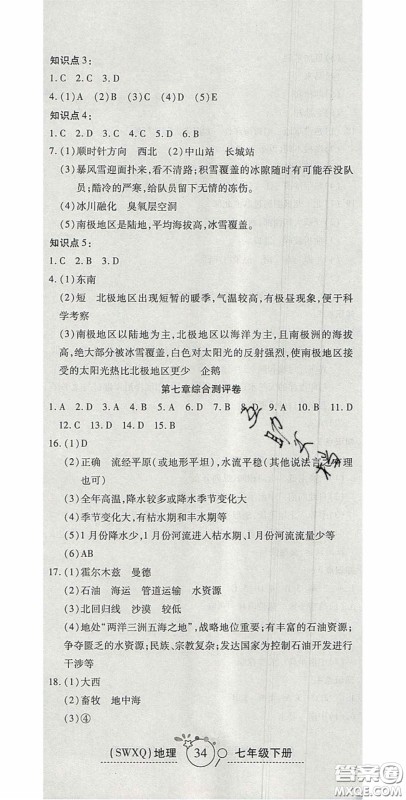 知识点3:
1. C  2. C  3. D
4. (1)A  (2)B  (3)C  (4)D  (5)E
知识点4:
1. C  2. C  3. D  4. D  5. D  6. B
7. (1)顺时针方向  西北  (2)中山站  长城站
(3)暴风雪迎面扑来,看不清路;积雪覆盖的冰隙随时有可能吞噬队
员;酷冷的严寒,给队员留下无情的冻伤。
(4)冰川融化  臭氧层空洞
(5)南极地区是陆地,平均海拔高,冰雪覆盖。
知识点5:
1. C  2. B  3. D
4. (1)东南
(2)短  北极地区出现短暂的暖季,气温较高,有极昼现象,便于科
学考察
(3)南极地区以陆地为主,北极地区以海洋为主,且南极洲的海拔
高,绝大部分被冰雪覆盖,白色对太阳光的反射强烈,南极地区接
受的太阳光热比北极地区更少  企鹅
第七章综合测评卷
1. A  2. D  3. B  4. D  5. D  6. B  7. B  8. D  9. A  10. B  11. D
12. C  13. A  14. D  15. B
16. (1)D
(2)正确  流经平原(或地形平坦),水流平稳(其他说法言之有理
也可)
(3)全年高温,降水较多或降水季节变化大
(4)季节变化大,有枯水期和丰水期等
(5)1月份降水少,1月份河流进入枯水期、1月份河流流量少等
(6)AB
17. (1)霍尔木兹  曼德
(2)石油  海运  管道运输  水资源
(3)北回归线  沙漠  较低
(4)地处“两洋三洲五海之地”,战略地位重要;有丰富的石油资源;
争夺匮乏的水资源;民族、宗教复杂;发达国家为控制石油开发引
进行干涉等
18. (1)大西
(2)畜牧  地中海
(3)④
(SWXQ)地理  34  七年级下册
答案圈
MXQE.COM